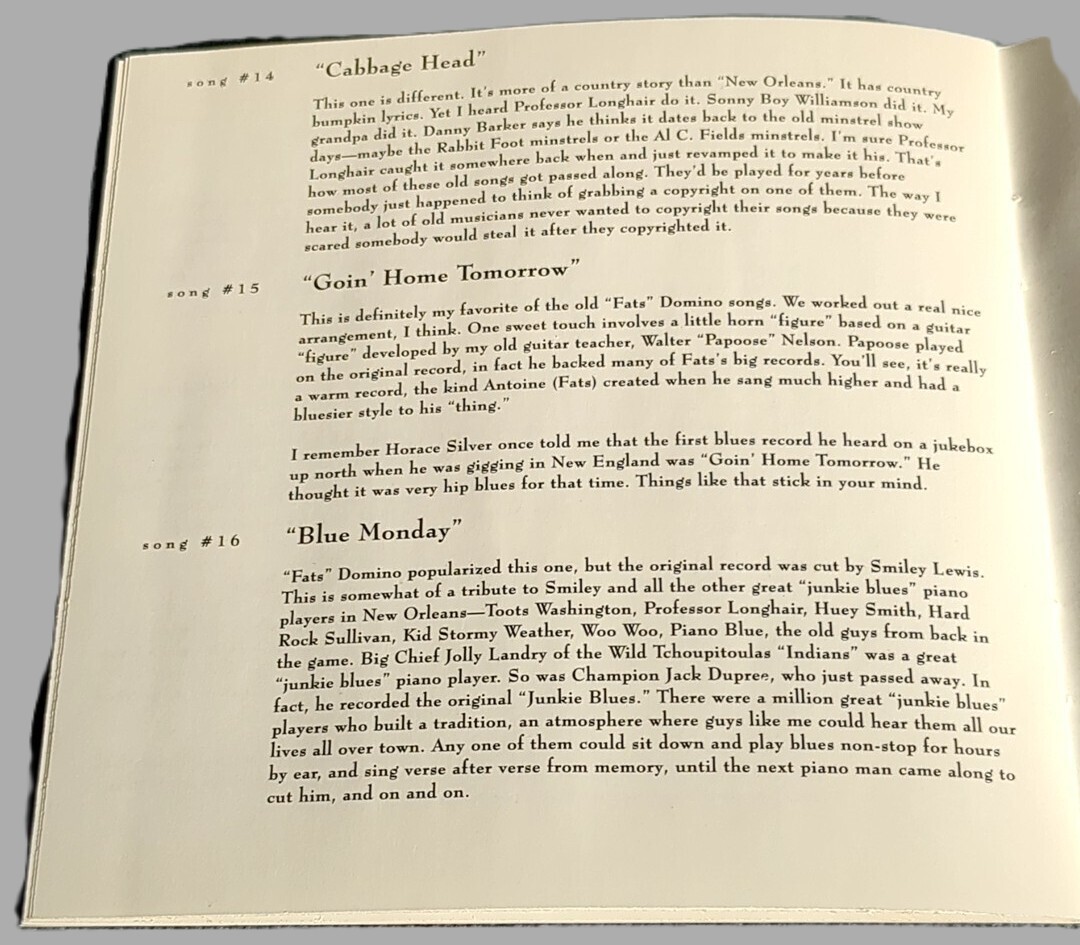 song #14
“Cabbage Head”
This one is different. It’s more of a country story than “New Orleans.” It has country
bumpkin lyrics. Yet I heard Professor Longhair do it. Sonny Boy Williamson did it. My
grandpa did it. Danny Barker says he thinks it dates back to the old minstrel show
days—maybe the Rabbit Foot minstrels or the Al C. Fields minstrels. I’m sure Professor
Longhair caught it somewhere back when and just revamped it to make it his. That’s
how most of these old songs got passed along. They’d be played for years before
somebody just happened to think of grabbing a copyright on one of them. The way I
hear it, a lot of old musicians never wanted to copyright their songs because they were
scared somebody would steal it after they copyrighted it.
song #15
“Goin’ Home Tomorrow”
This is definitely my favorite of the old “Fats” Domino songs. We worked out a real nice
arrangement, I think. One sweet touch involves a little horn “figure” based on a guitar
“figure” developed by my old guitar teacher, Walter “Papoose” Nelson. Papoose played
on the original record, in fact he backed many of Fats’s big records. You’ll see, it’s really
a warm record, the kind Antoine (Fats) created when he sang much higher and had a
bluesier style to his “thing.”
I remember Horace Silver once told me that the first blues record he heard on a jukebox
up north when he was gigging in New England was “Goin’ Home Tomorrow.” He
thought it was very hip blues for that time. Things like that stick in your mind.
song #16
“Blue Monday”
“Fats” Domino popularized this one, but the original record was cut by Smiley Lewis.
This is somewhat of a tribute to Smiley and all the other great “junkie blues” piano
players in New Orleans—Toots Washington, Professor Longhair, Huey Smith, Hard
Rock Sullivan, Kid Stormy Weather, Woo Woo, Piano Blue, the old guys from back in
the game. Big Chief Jolly Landry of the Wild Tchoupitoulas “Indians” was a great
“junkie blues” piano player. So was Champion Jack Dupree, who just passed away. In
fact, he recorded the original “Junkie Blues.” There were a million great “junkie blues”
players who built a tradition, an atmosphere where guys like me could hear them all our
lives all over town. Any one of them could sit down and play blues non-stop for hours
by ear, and sing verse after verse from memory, until the next piano man came along to
cut him, and on and on.